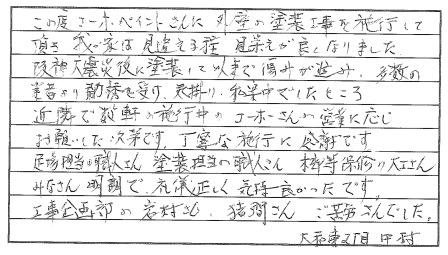 この度ユーホーペイントさんに外壁の塗装工事を施行して
頂き 我が家は見違える程 見栄えが良くなりました。
阪神大震災後に塗装して以来で傷みが進み、多数の
業者から勧誘を受け、見掛り、思案中でしたところ
近隣で数軒の施行中のユーホーさんの営業に応じ
お願いした次第です。丁寧な施行に感謝です。
足場担当の職人さん 塗装担当の職人さん 樋等保修の大工さん
みなさん明朗で、礼儀正しく気持良かったです。
工事企画部の岩村さん、猪間さん ご苦労さんでした。
大和東2丁目 中村